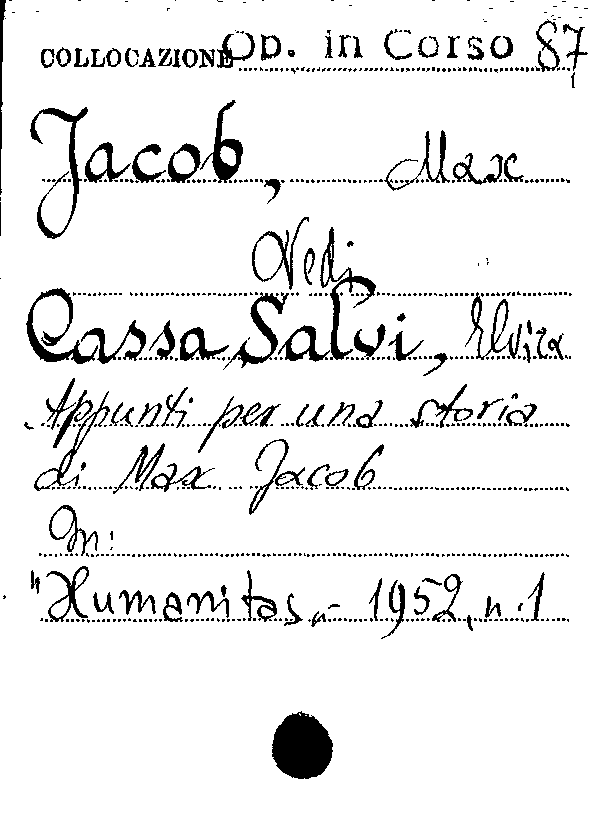 COLLOCAZIONE Op. in Corso 87
Jacob, Max
Vedi
Cassa Salvi, Elvira
Appunti per una storia
di Max Jacob
In:
"Humanitas„ - 1952, n. 1